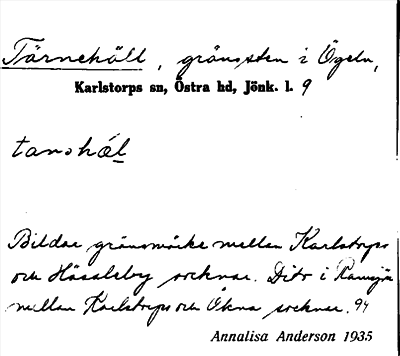 Tärnehäll, gränssten i Ögeln,
Karlstorps sn, Östra hd, Jönk. l. 9
tanshäl
Bildar gränsmärke mellan Karlstorps
och Hässleby socknar. Dito i Ramsjön
mellan Karlstorps och Ökna socknar. 94
Annalisa Anderson 1935